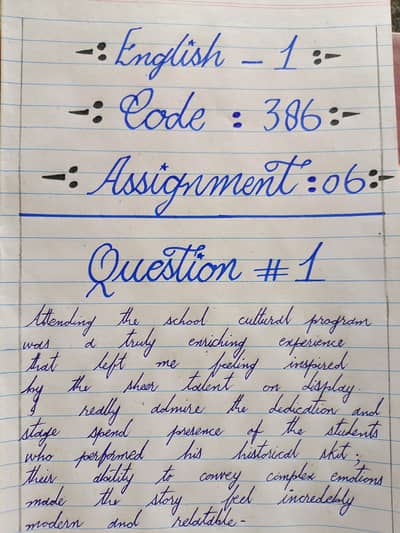 English - 1
Code : 386
Assignment : 06
Question # 1
Attending the school cultural program
was a truly enriching experience
that left me feeling inspired
by the sheer talent on display.
I really admire the dedication and
stage spend presence of the students
who performed his historical skit;
their ability to convey complex emotions
made the story feel incredebly
modern and relatable-